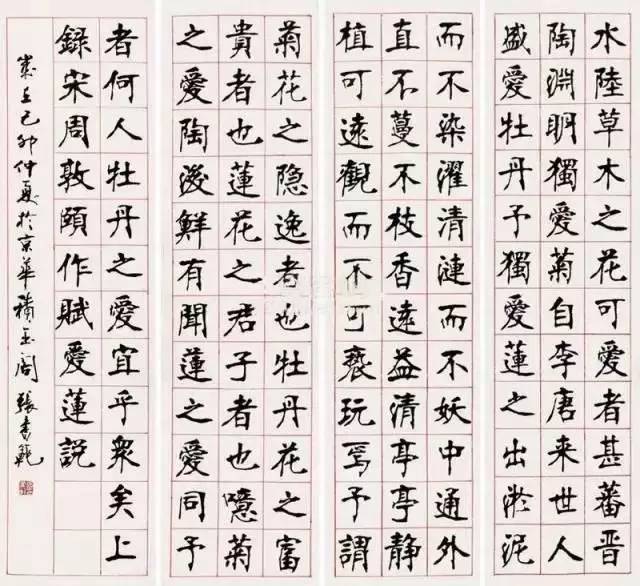 水陸草木之花可愛者甚蕃晋
陶淵明獨愛菊自李唐来世人
盛愛牡丹予獨愛蓮之出淤泥
而不染濯清漣而不妖中通外
直不蔓不枝香遠益清亭亭静
植可遠觀而不可褻玩焉予謂
菊花之隐逸者也牡丹花之富
貴者也蓮花之君子者也噫菊
之愛陶後鮮有聞蓮之愛同予
者何人牡丹之愛宜乎衆矣上
録宋周敦頤作賦愛蓮説
歲在己卯仲夏於京華積玉阁張書範